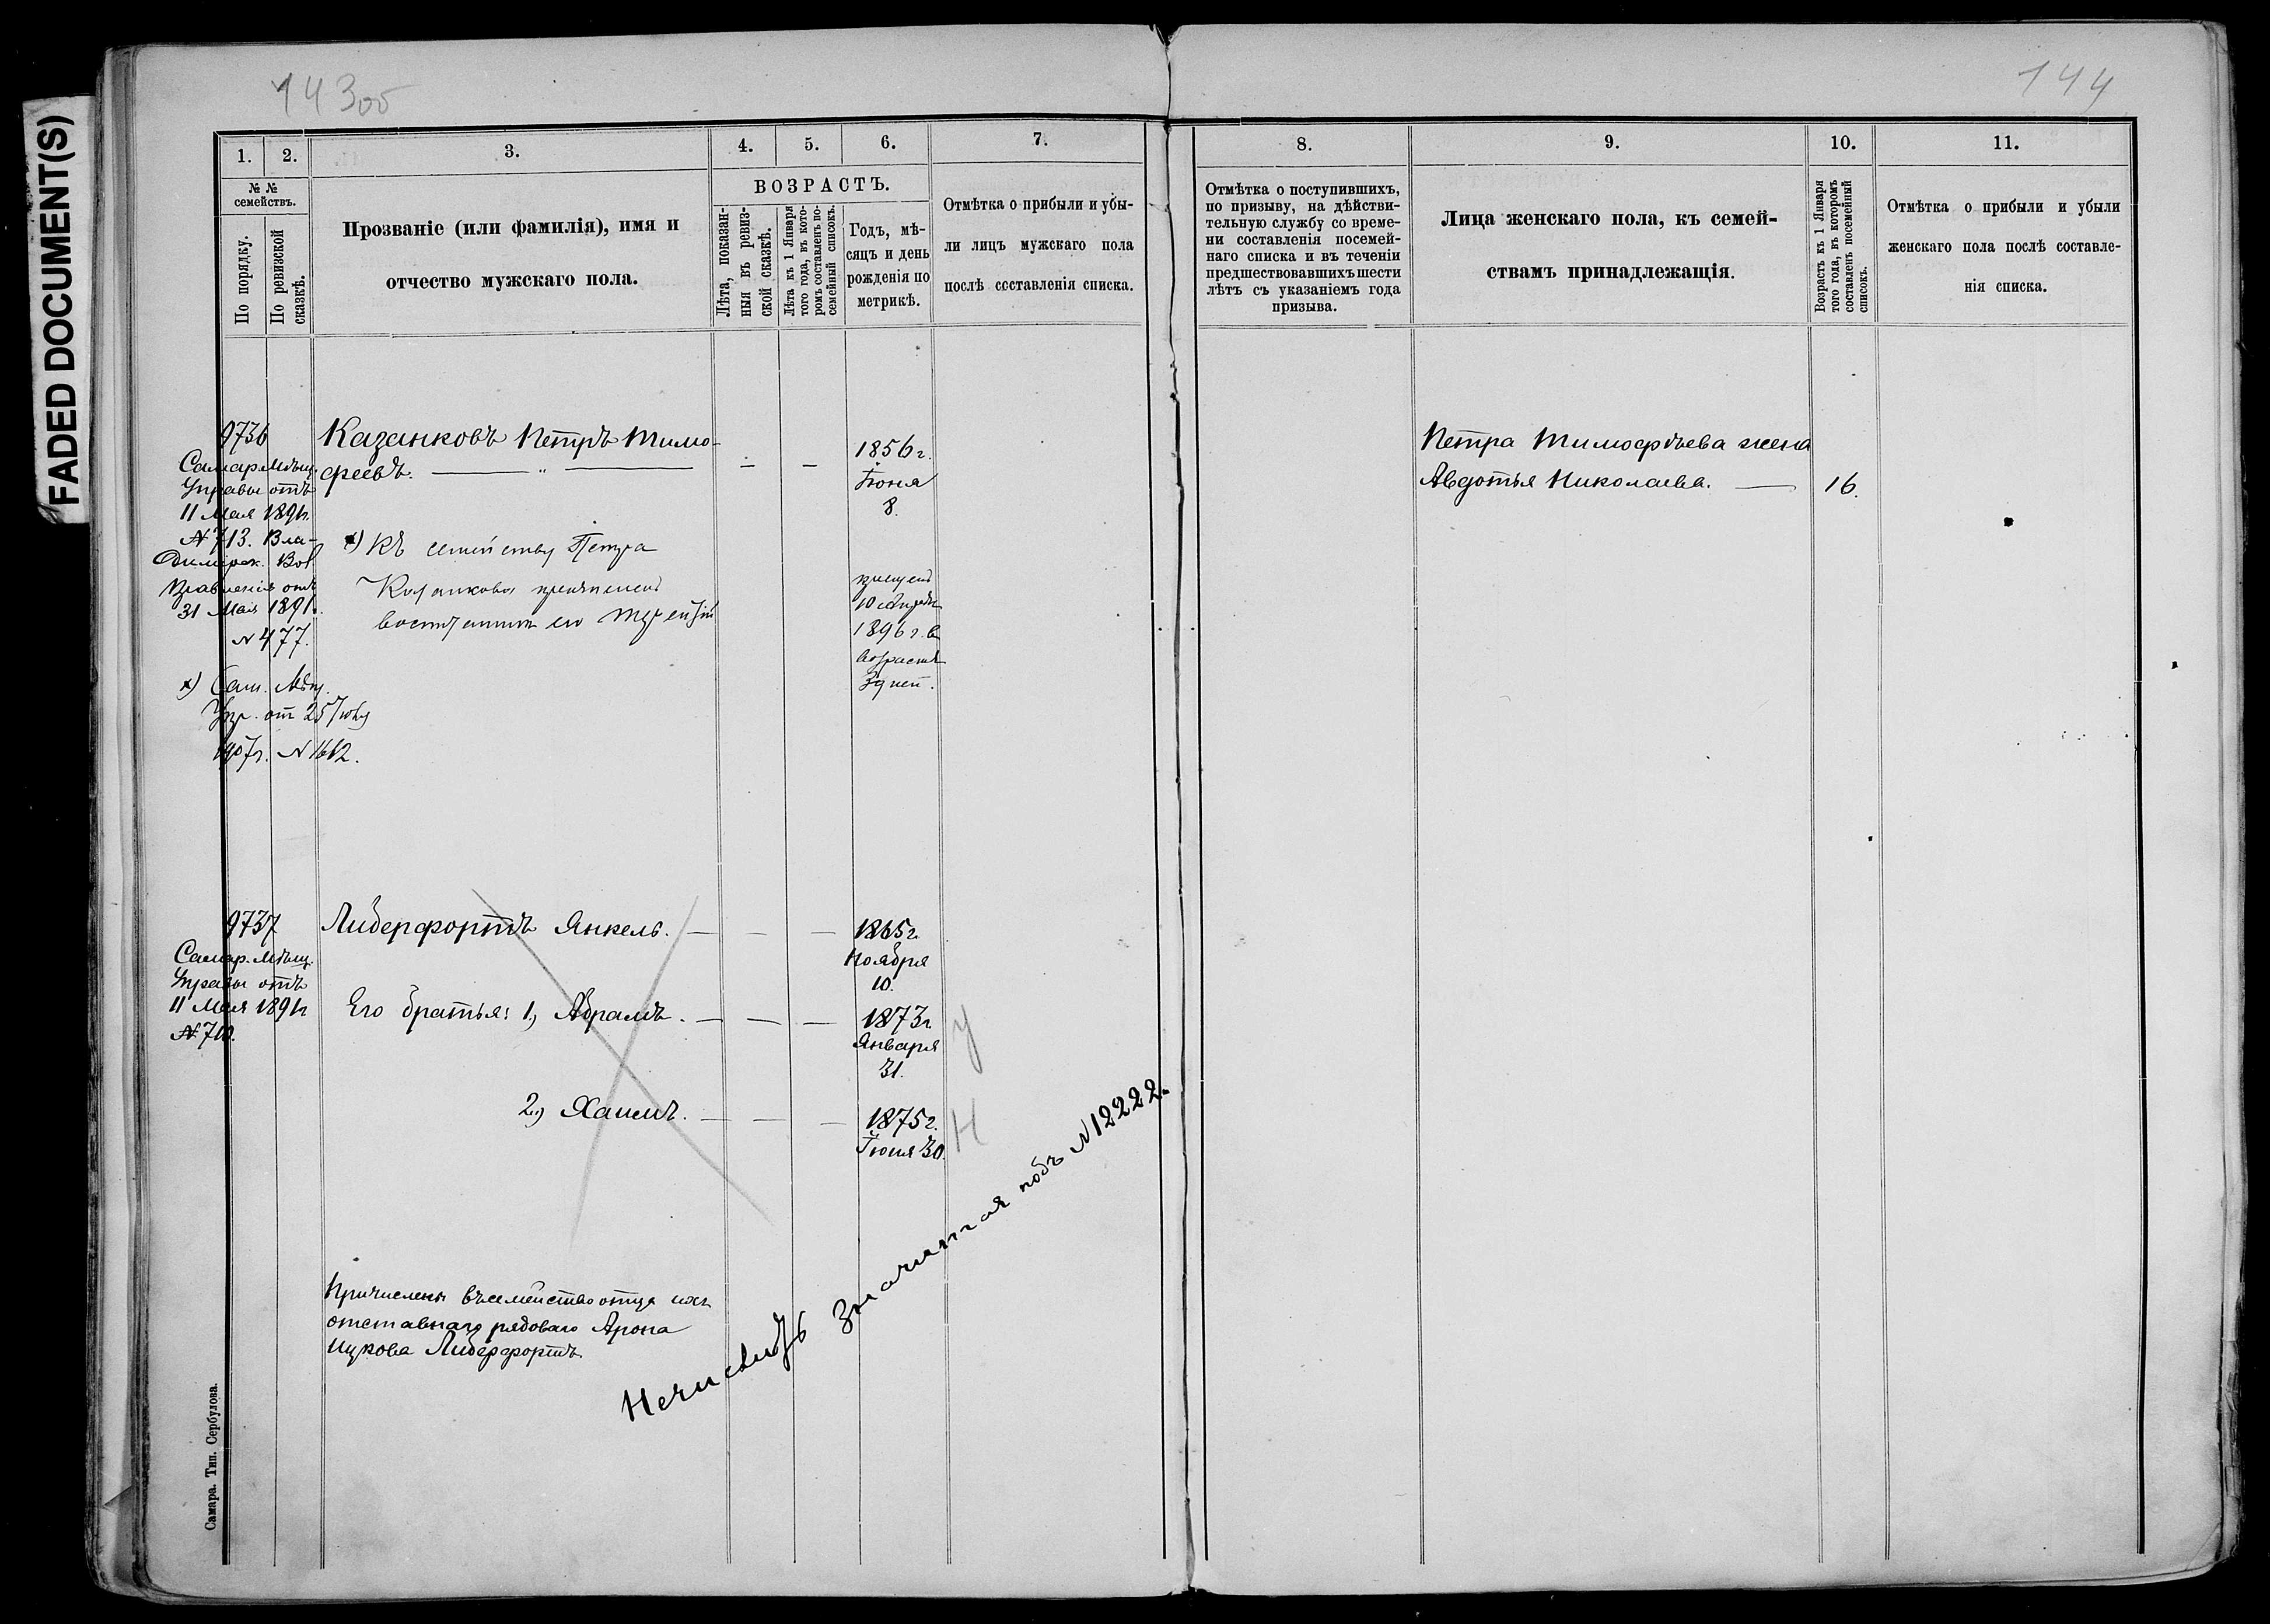 FADED DOCUMENT(S)
143об
144
1.
2.
3.
4.
5.
6.
7.
8.
9.
10.
11.
№ №
семействъ.
По порядку.
По ревизской
сказкѣ.
Прозваніе (или фамилія), имя и
отчество мужскаго пола.
ВОЗРАСТЪ.
Лѣта, показан-
ныя въ ревиз-
ской сказкѣ.
Лѣта къ 1 Января
того года, въ кото-
ромъ составленъ по-
семейный списокъ.
Годъ, мѣ-
сяцъ и день
рожденія по
метрикѣ.
Отмѣтка о прибыли и убы-
ли лицъ мужскаго пола
послѣ составленія списка.
Отмѣтка о поступившихъ,
по призыву, на дѣйстви-
тельную службу со време-
ни составленія посемей-
наго списка и въ теченіи
предшествовавшихъ шести
лѣтъ съ указаніемъ года
призыва.
Лица женскаго пола, къ семей-
ствамъ принадлежащія.
Возрастъ къ 1 Января
того года, въ которомъ
составленъ посемейный
списокъ.
Отмѣтка о прибыли и убыли
женскаго пола послѣ составле-
нія списка.
9736
Самар. Мѣщ.
Управы отъ
11 Мая 1891г.
№ 713. Вла-
димірск. Вол
Правленія отъ
31 Мая 1891г.
№ 477.
х) Сам. Мѣщ.
Упр. от 25
1907г. № 1612.
Казанковъ Петръ Тимо-
феевъ. — " —
х) Къ семейству Петра
Казанкова
его
1856 г.
Іюня
8.
10 Апрѣля
1896 г. в
возрастѣ
3 дней.
Петра Тимофѣева жена
Авдотья Николаева. —
16.
9737
Самар. Мѣщ.
Управы отъ
11 Мая 1891г
№ 710.
Либерфортъ Янкель. — — —
1865 г.
Ноября
10.
Его братья: 1, Абрамъ. — — —
1873 г.
Января
31.
У
2, Хаимъ. — — —
1875 г.
Іюня 30.
Н
Причислены въ семейство отца ихъ
отставнаго рядоваго Арона
Ицкова Либерфортъ.
значится подъ № 12222.
Самара. Тип. Сербулова.